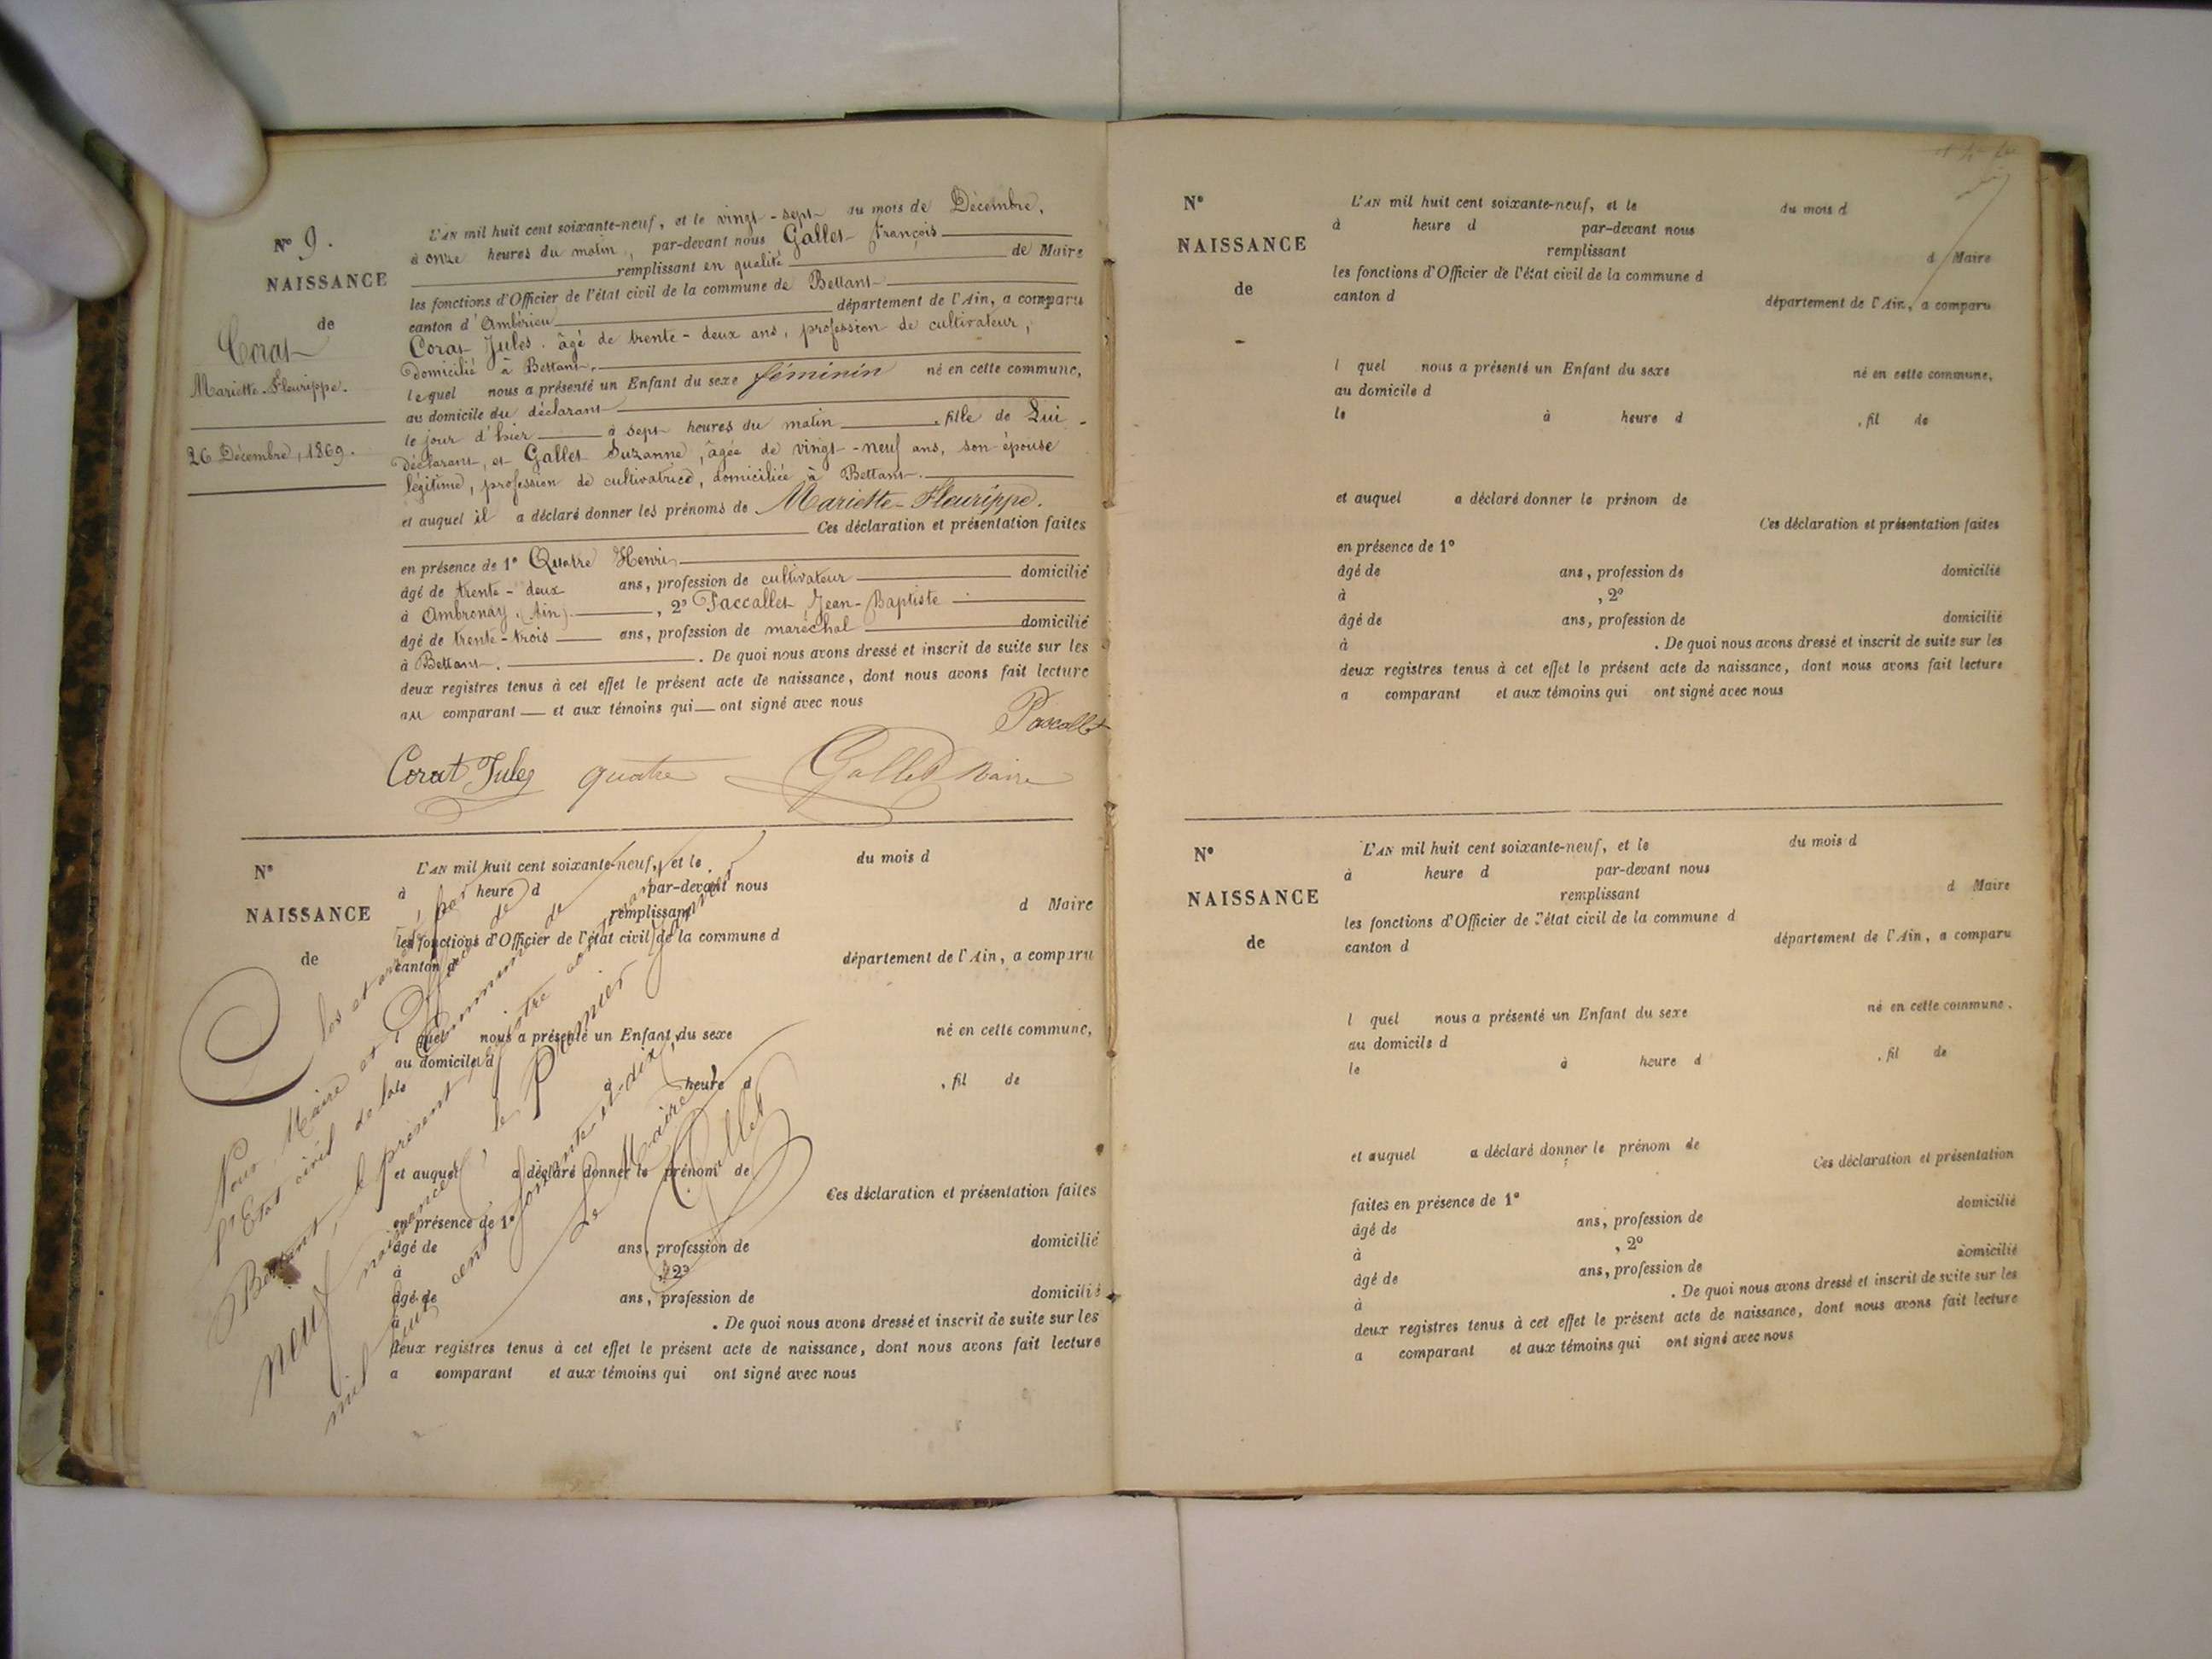 N° 9.
NAISSANCE
de
Corat
Mariette-Fleurippe.
26 Décembre, 1869.
L'AN mil huit cent soixante-neuf, et le vingt-sept du mois de Décembre,
à onze heures du matin, par-devant nous Gallet François
remplissant en qualité de Maire
les fonctions d'Officier de l'état civil de la commune de Bettant
canton d'Ambérieu département de l'Ain, a comparu
Corat Jules. âgé de trente-deux ans, profession de cultivateur,
domicilié à Bettant,
lequel nous a présenté un Enfant du sexe féminin né en cette commune,
au domicile du déclarant
le jour d'hier à sept heures du matin, fille de Lui-
Déclarant, et Gallet Suzanne, âgée de vingt-neuf ans, son épouse
légitime, profession de cultivatrice, domiciliée à Bettant.
et auquel il a déclaré donner les prénoms de Mariette-Fleurippe.
Ces déclaration et présentation faites
en présence de 1° Quatre Henri
âgé de trente-deux ans, profession de cultivateur domicilié
à Ambronay, (Ain), 2° Paccallet Jean-Baptiste
âgé de trente-trois ans, profession de maréchal domicilié
à Bettant. De quoi nous avons dressé et inscrit de suite sur les
deux registres tenus à cet effet le présent acte de naissance, dont nous avons fait lecture
au comparant et aux témoins qui ont signé avec nous
Paccallet
Corat Jules quatre Gallet Maire
N°
NAISSANCE
de
L'AN mil huit cent soixante-neuf, et le du mois d
à heure d par-devant nous
remplissant d Maire
les fonctions d'Officier de l'état civil de la commune d
canton d département de l'Ain, a comparu
l quel nous a présenté un Enfant du sexe né en cette commune,
au domicile d
à heure d , fil de
et auquel a déclaré donner le prénom de
Ces déclaration et présentation faites
en présence de 1°
âgé de ans, profession de domicilié
à , 2°
âgé de ans, profession de domicilié
à . De quoi nous avons dressé et inscrit de suite sur les
deux registres tenus à cet effet le présent acte de naissance, dont nous avons fait lecture
a comparant et aux témoins qui ont signé avec nous
Clos et arrêté par
Nous Maire et Officier de
l'Etat civil de la Commune de
Bettant, le présent registre contenant
neuf naissances, le Premier Janvier
mil huit cent soixante-et-dix,
Le Maire
Gallet
N°
NAISSANCE
de
L'AN mil huit cent soixante-neuf, et le du mois d
à heure d par-devant nous
remplissant d Maire
les fonctions d'Officier de l'état civil de la commune d
canton d département de l'Ain, a comparu
l quel nous a présenté un Enfant du sexe né en cette commune,
au domicile d
le à heure d , fil de
et auquel a déclaré donner le prénom de
Ces déclaration et présentation faites
en présence de 1°
âgé de ans, profession de domicilié
à , 2°
âgé de ans, profession de domicilié
à . De quoi nous avons dressé et inscrit de suite sur les
deux registres tenus à cet effet le présent acte de naissance, dont nous avons fait lecture
a comparant et aux témoins qui ont signé avec nous
N°
NAISSANCE
de
L'AN mil huit cent soixante-neuf, et le du mois d
à heure d par-devant nous
remplissant d Maire
les fonctions d'Officier de l'état civil de la commune d
canton d département de l'Ain, a comparu
l quel nous a présenté un Enfant du sexe né en cette commune.
au domicile d
le à heure d , fil de
et auquel a déclaré donner le prénom de
Ces déclaration et présentation
faites en présence de 1° domicilié
âgé de ans, profession de
à , 2° domicilié
âgé de ans, profession de
à . De quoi nous avons dressé et inscrit de suite sur les
deux registres tenus à cet effet le présent acte de naissance, dont nous avons fait lecture
a comparant et aux témoins qui ont signé avec nous